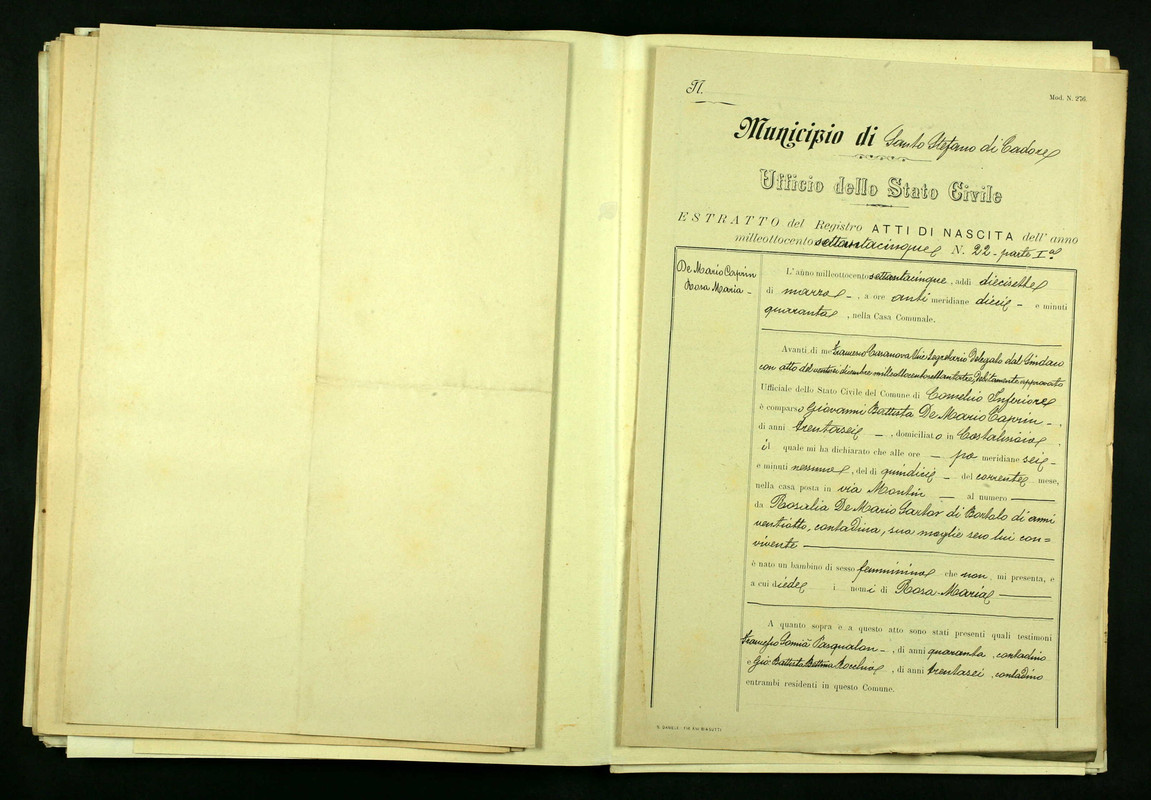 N.
Mod. N. 276
Municipio di Santo Stefano di Cadore
Ufficio dello Stato Civile
ESTRATTO del Registro ATTI DI NASCITA dell'anno
milleottocento settantacinque N. 22 - parte Iª
De Mario Caprin
Rosa Maria -
L'anno milleottocento settantacinque, addi diecisette
di marzo -, a ore anti meridiane dieci - e minuti
quaranta, nella Casa Comunale.
Avanti di me Francesco Casanova Vice Segretario Delegato dal Sindaco
con atto del dicembre milleottocentosettantatre, debitamente approvato
Ufficiale dello Stato Civile del Comune di Comelico Inferiore
è comparso Giovanni Battista De Mario Caprin -,
di anni trentasei -, domiciliato in Costalissoio,
il quale mi ha dichiarato che alle ore - po meridiane sei -
e minuti nessuno, del di quindici - del corrente mese,
nella casa posta in via Montin - al numero
da Rosalia De Mario Sartor di Bortolo di anni
ventiotto, contadina, sua moglie seco lui con=
vivente
è nato un bambino di sesso femminino che non mi presenta, e
a cui diede i nomi di Rosa Maria
A quanto sopra e a questo atto sono stati presenti quali testimoni
Pasqualon -, di anni quaranta, contadino
e Gio Battista, di anni trentasei, contadino
entrambi residenti in questo Comune.
S. DANIELE - TIP. BIASUTTI